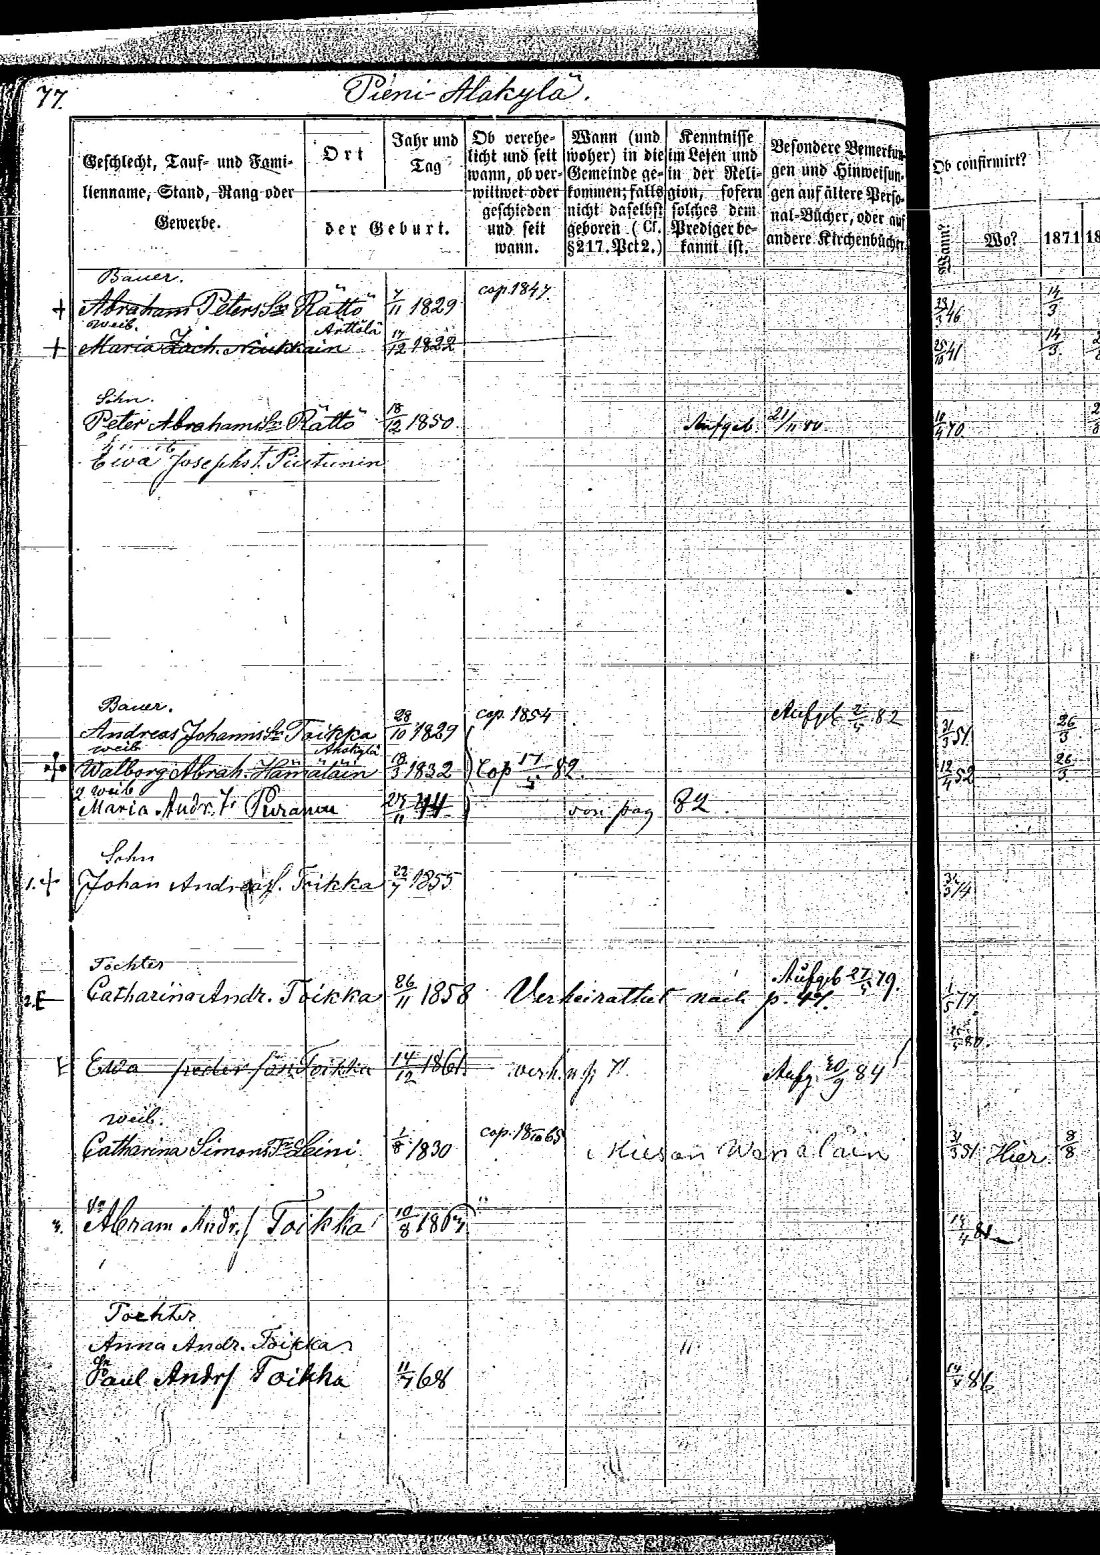 77.
Pieni Alakylä.
Geschlecht, Tauf- und Fami-
lienname, Stand, Rang oder
Gewerbe.
Ort
der Geburt.
Jahr und
Tag
Ob verehe-
licht und seit
wann, ob ver-
wittwet oder
geschieden
und seit
wann.
Wann (und
woher) in die
Gemeinde ge-
kommen; falls
nicht daselbst
geboren. (Cf.
§217. Pct 2.)
Kenntnisse
im Lesen und
in der Reli-
gion, sofern
solches dem
Prediger be-
kannt ist.
Besondere Bemerkun-
gen und Hinweisun-
gen auf ältere Perso-
nal-Bücher, oder auf
andere Kirchenbücher.
Ob confirmirt?
Wann?
Wo?
1871
18
Bauer.
Abraham Peters Sn Rättö 7/11 1829 cap. 1847. 23/3 46 14/3
weib. Arttölä
Maria Zach. Niukkain 17/12 1822 25/10 41 14/3
Sohn.
Peter Abrahams Sn Rättö 18/12 1850 Aufgeb. 21/11 80. 10/4 70
Ewa Josephs t.
Bauer.
Andreas Johanns Sn Toikka 28/10 1829 cop. 1854 Aufgeb 2/5 82 31/3 51. 26/3
weib Alakylä
Walborg Abrah. Hämäläin 18/3 1832 Cop 17/5 82. 12/4 52 26/3
2 weib
Maria Andr. Tr Puranen 27/11 44 von pag 82.
Sohn
1. Johan Andreas S. Toikka 22/7 1855 31/3 74
Tochter
2. Catharina Andr. Toikka 26/11 1858 Verheirattet nach p. 47. Aufgeb 27/5 79. 1/5 77.
Ewa Toikka 14/12 1861. verh. n p 71 Aufg. 30/9 84
weib.
Catharina Simons Tr Leini 1/8 1830 cop. 18/10 65 31/3 51 Hier. 8/8
Sn
3. Abram Andr. S Toikka 10/8 1863 81
Tochter
Anna Andr. Toikka
Sn
Paul Andr S Toikka 11/7 68 86